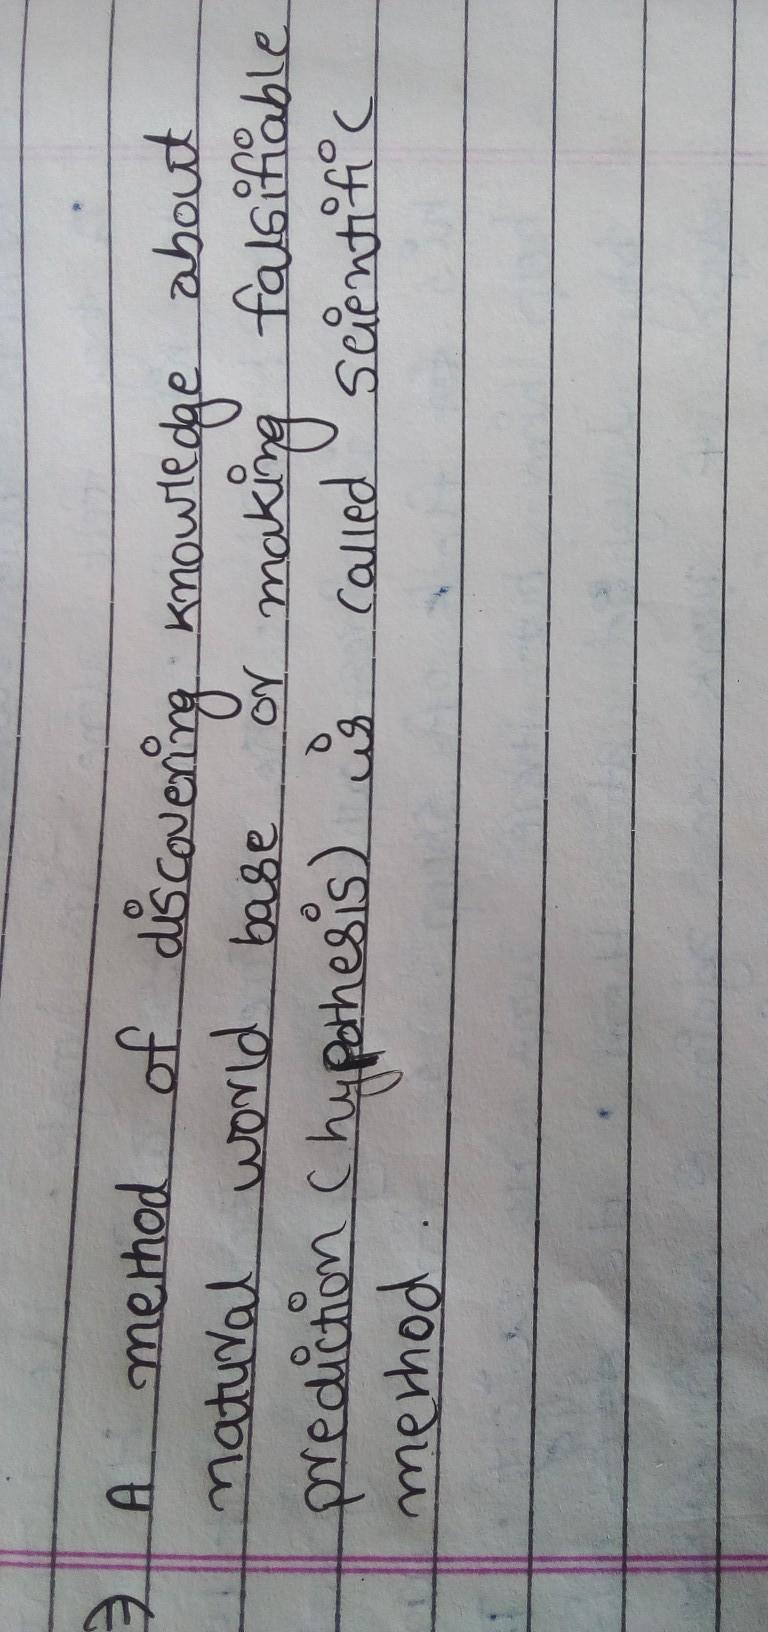 ⇒ A method of discovering knowledge about
natural world base or making falsifiable
prediction (hypothesis) is called scientific
method.